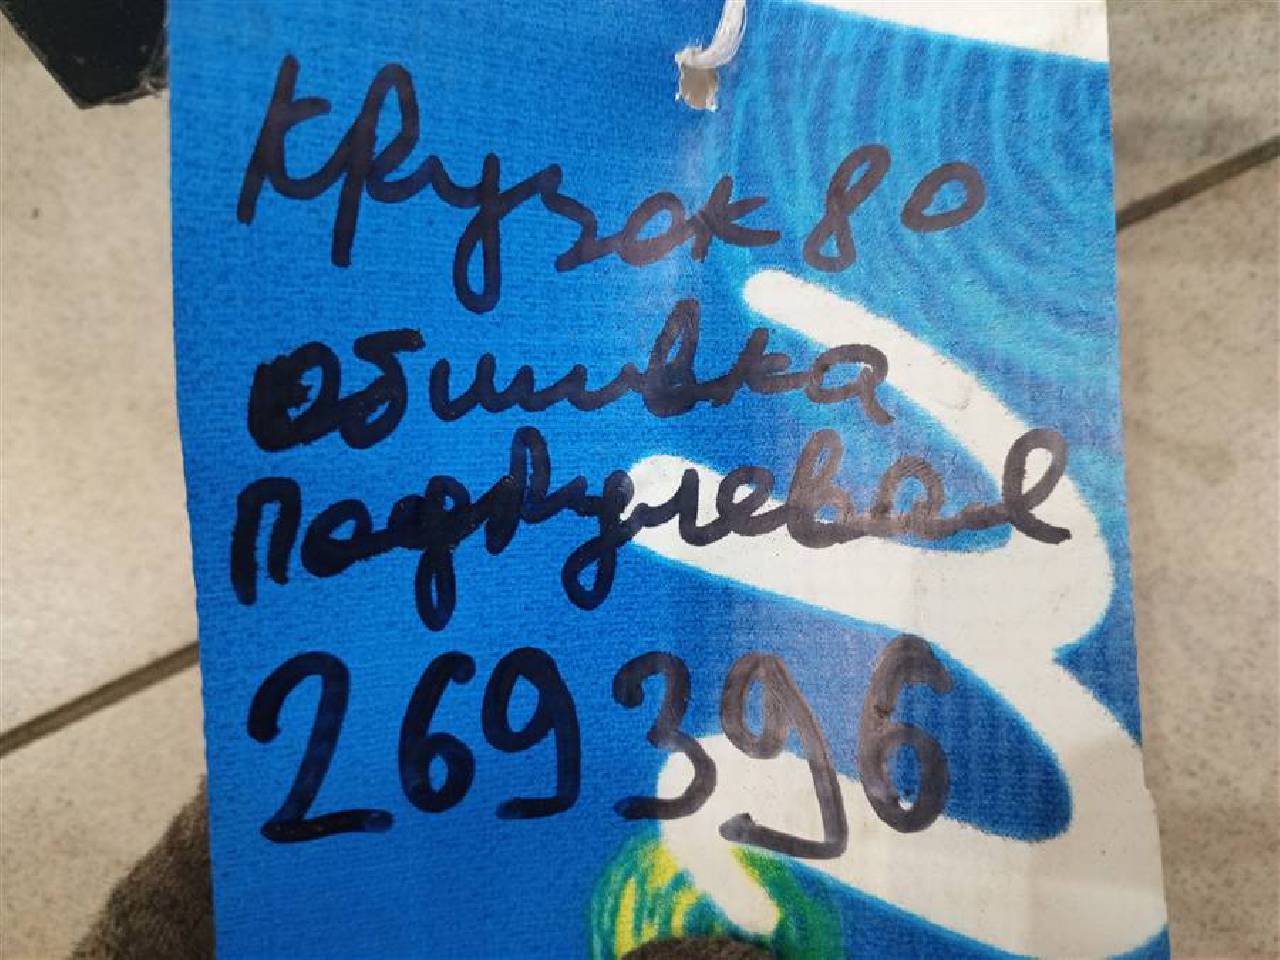 Крузак 80
Обшивка
подрулевая
269396